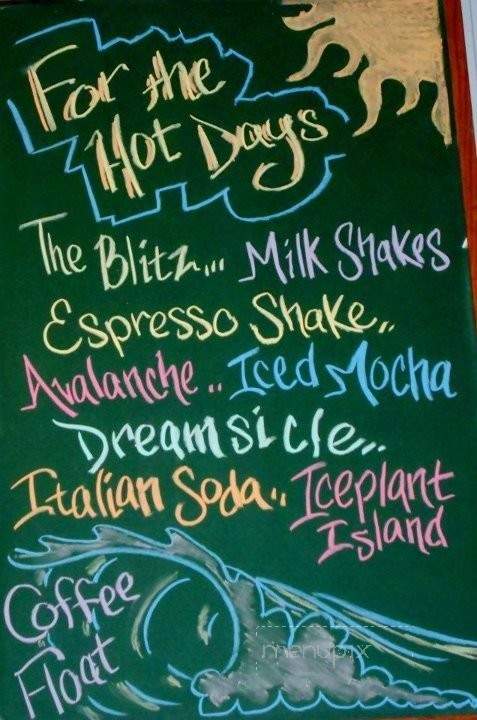 For the
Hot Days
The Blitz... Milk Shakes
Espresso Shake..
Avalanche.. Iced Mocha
Dreamsicle...
Italian Soda.. Iceplant
Island
Coffee
Float
menupix